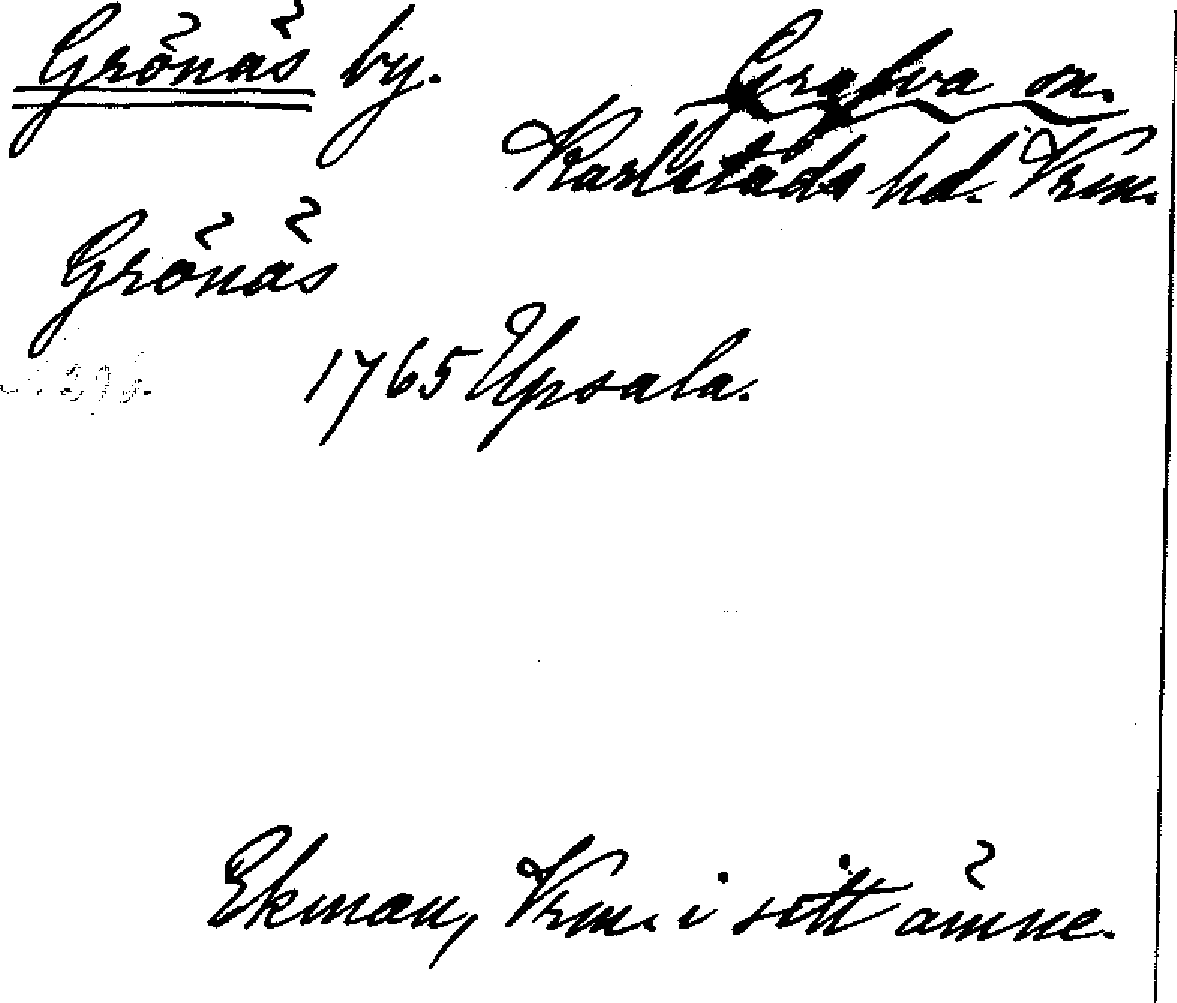 Grönäs by.
Grafva sn.
Karlstads hd. Vrm.
Grönäs
1765 Upsala.
Ekman, Vrm. i sitt ämne.